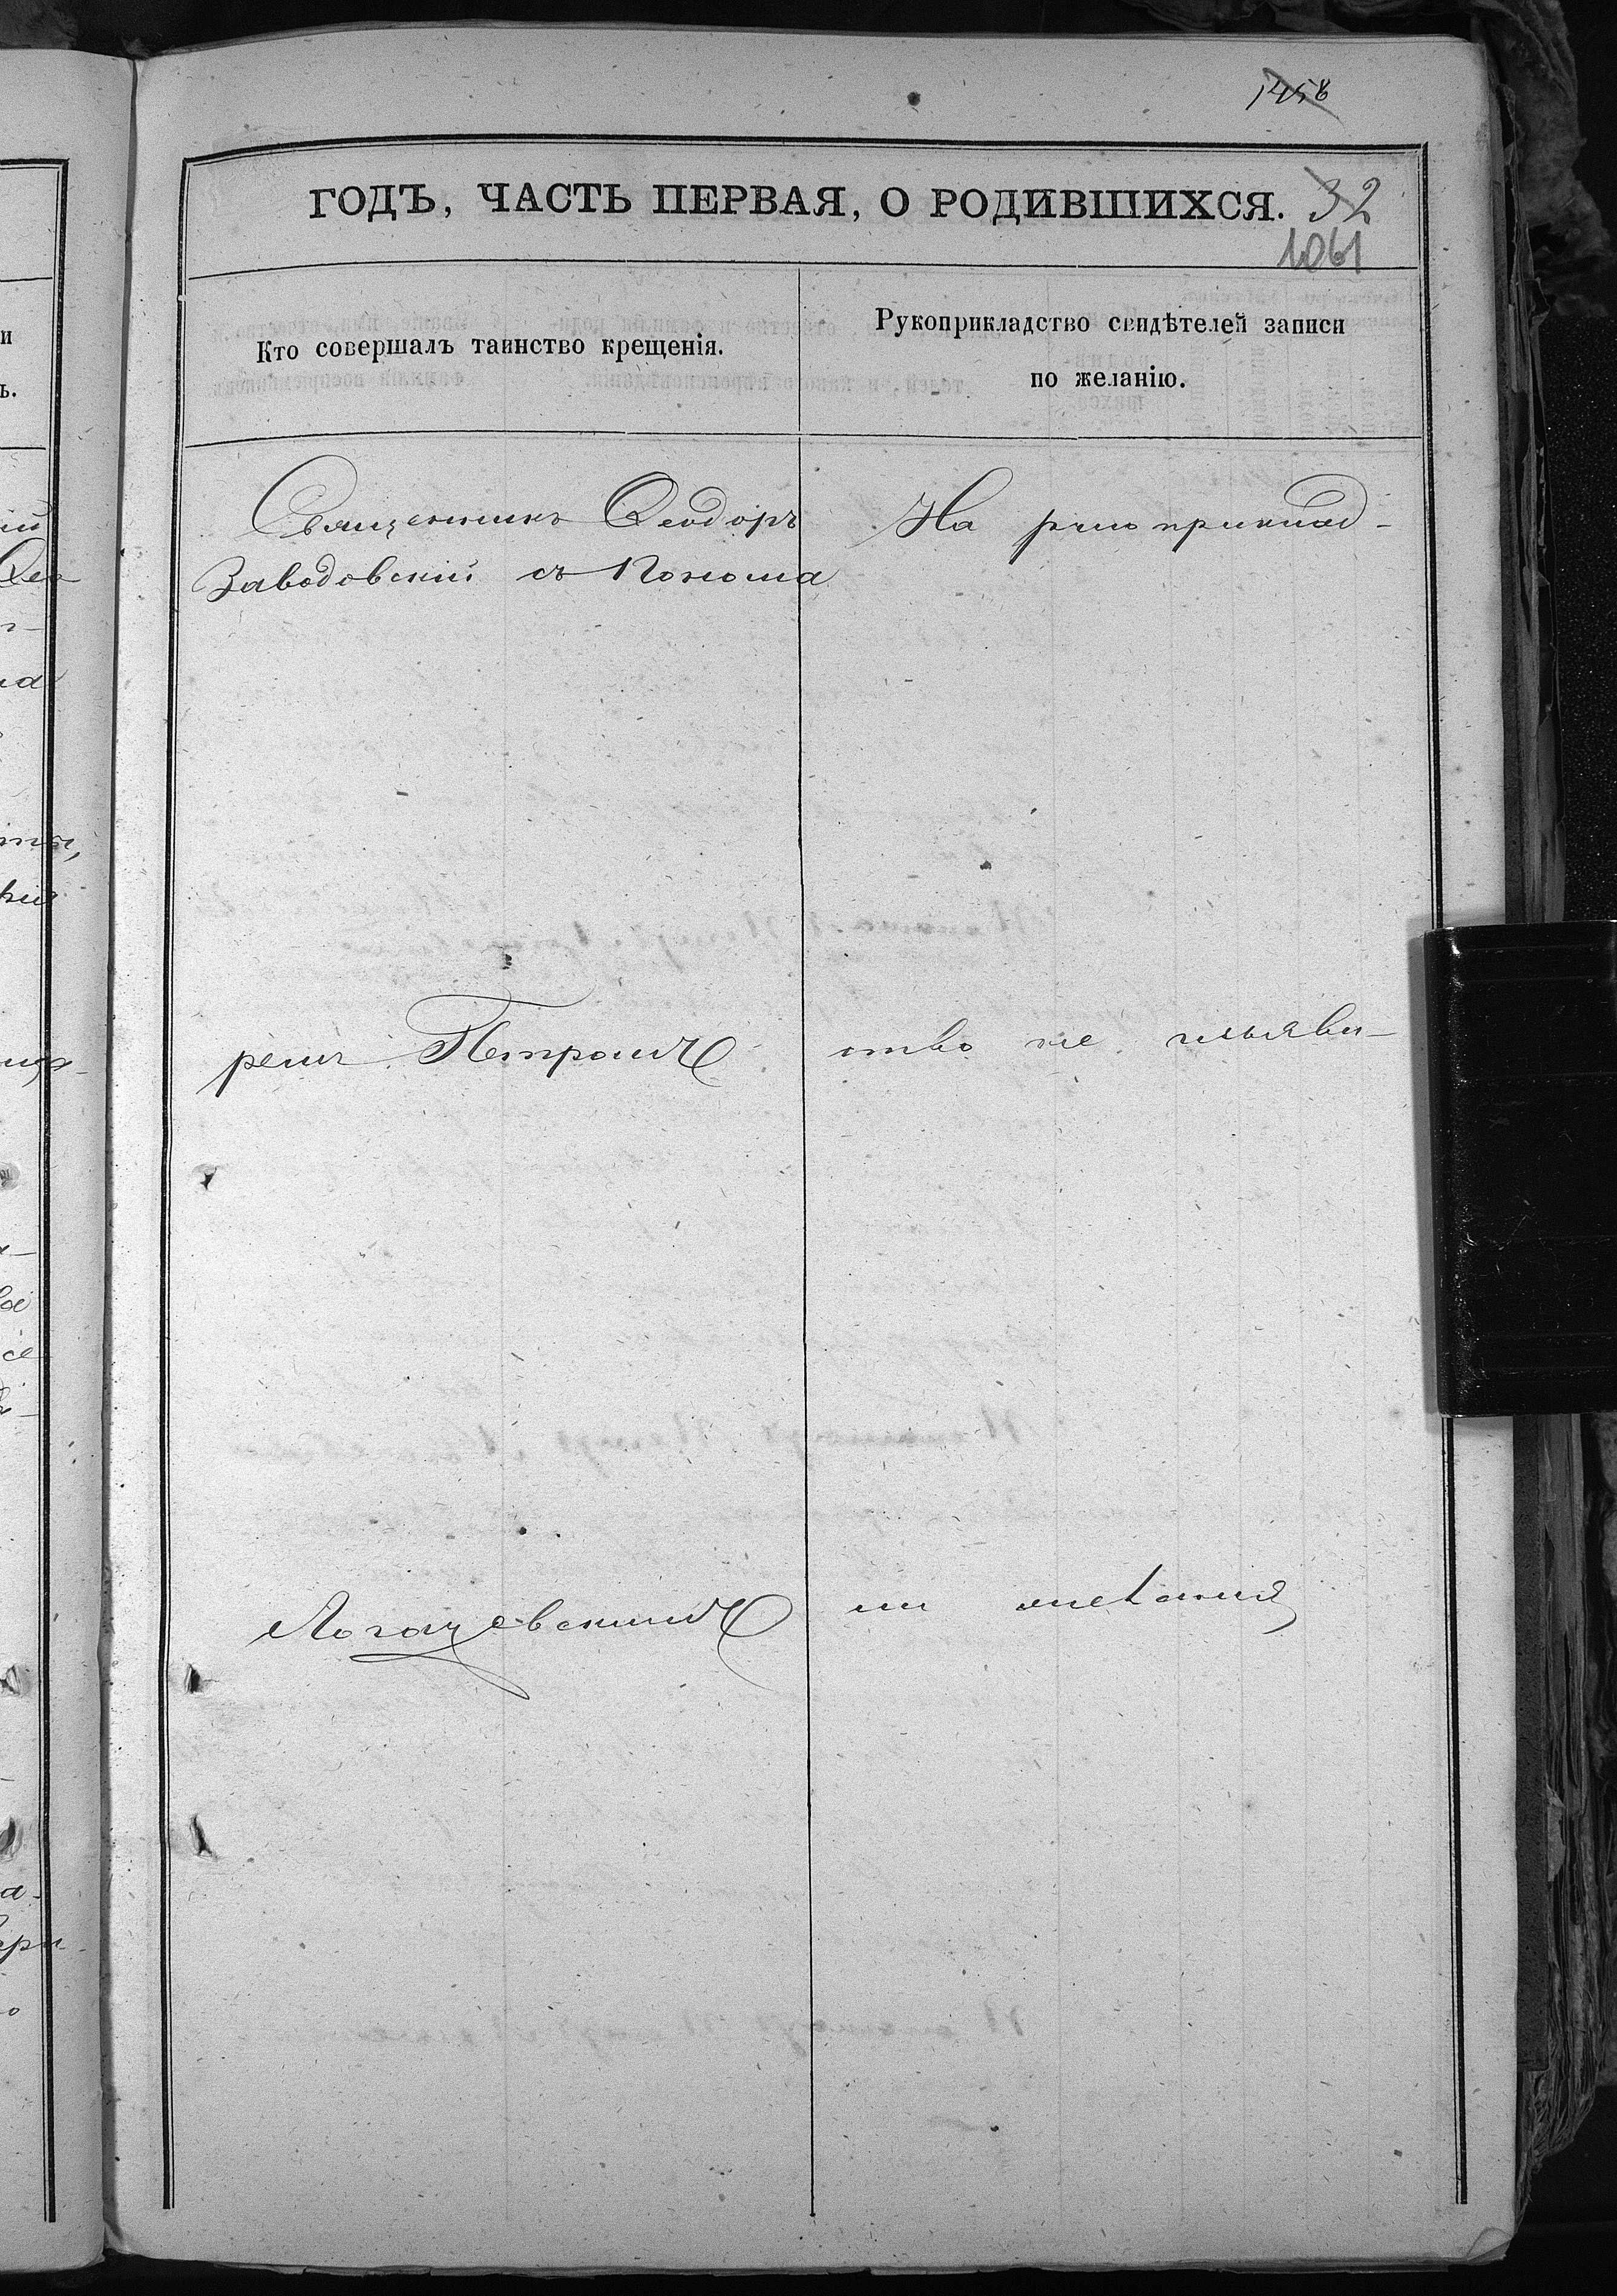 1458
ГОДЪ, ЧАСТЬ ПЕРВАЯ, О РОДИВШИХСЯ. 32
1061
Кто совершалъ таинство крещенія.
Рукоприкладство свидѣтелей записи
по желанію.
Священникъ Ѳеодоръ
Заводовскій съ Поноma
ремъ Петромъ
Логачевскимъ
На рукоприклад-
ство не изъяви-
ли желанія